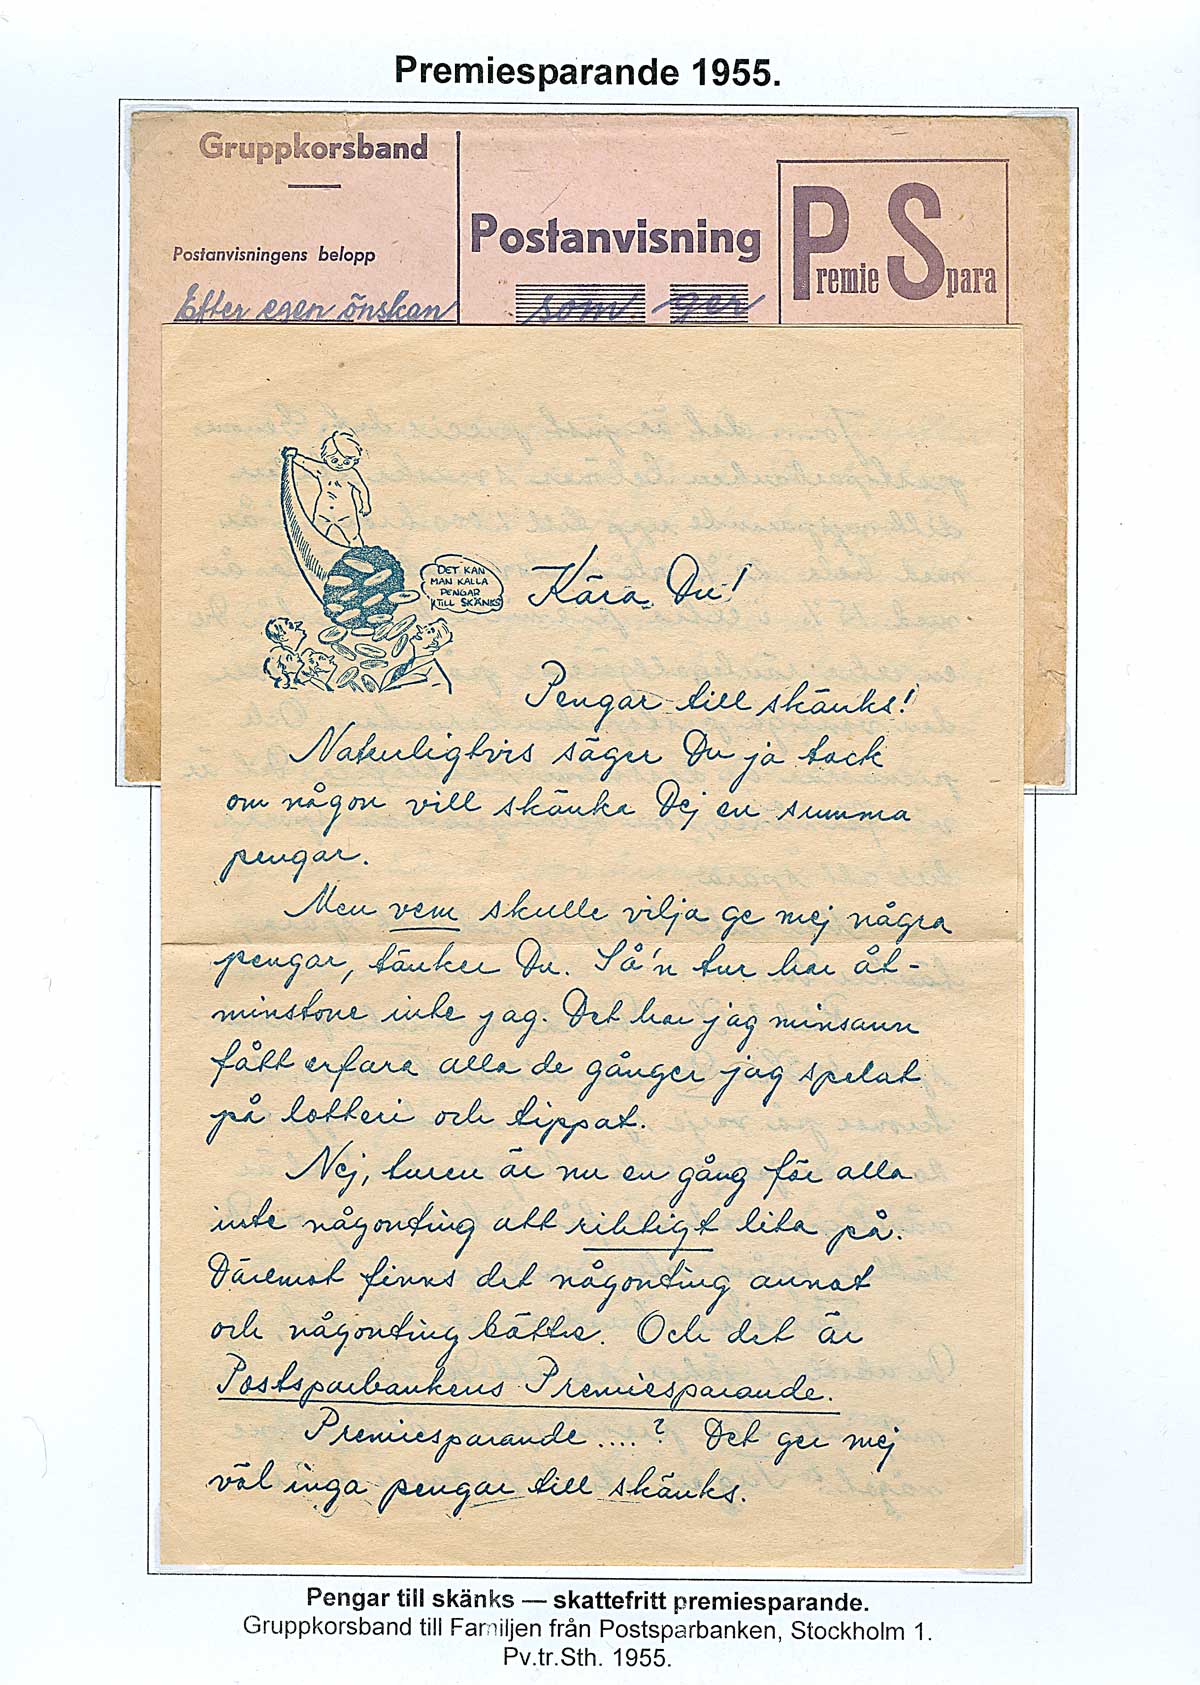 Premiesparande 1955.
Gruppkorsband
Postanvisningens belopp
Efter egen önskan
Postanvisning
som ger
Premie Spara
DET KAN
MAN KALLA
PENGAR
TILL SKÄNKS
Kära Du!
Pengar till skänks!
Naturligtvis säger Du ja tack
om någon vill skänka Dej en summa
pengar.
Men vem skulle vilja ge mej några
pengar, tänker Du. Så'n tur har åt-
minstone inte jag. Det har jag minsann
fått erfara alla de gånger jag spelat
på lotteri och tippat.
Nej, turen är nu en gång för alla
inte någonting att riktigt lita på.
Däremot finns det någonting annat
och någonting bättre. Och det är
Postsparbankens Premiesparande.
Premiesparande....? Det ger mej
väl inga pengar till skänks.
Pengar till skänks — skattefritt premiesparande.
Gruppkorsband till Familjen från Postsparbanken, Stockholm 1.
Pv.tr.Sth. 1955.